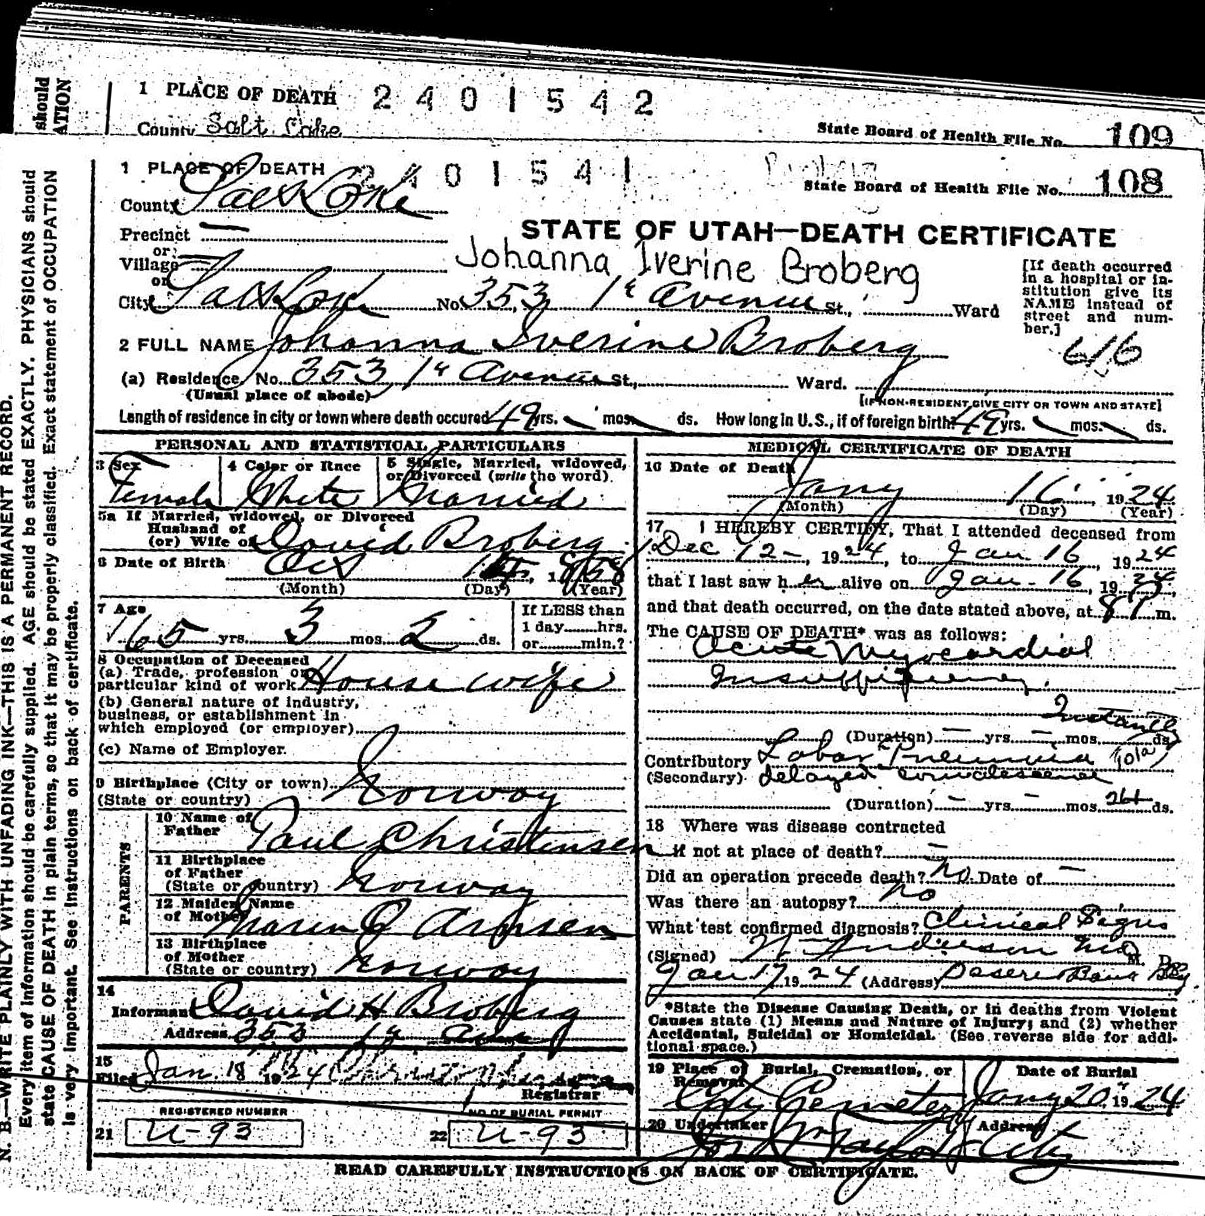 should
ATION
1 PLACE OF DEATH 2401542
County Salt Lake
State Board of Health File No. 109
1 PLACE OF DEATH 2401541
State Board of Health File No. 108
County Salt Lake
STATE OF UTAH—DEATH CERTIFICATE
Precinct —
or
Village
Johanna Iverine Broberg
[If death occurred in a hospital or institution give its NAME instead of street and number.]
or
City Salt Lake No. 353, 1st Avenue St., Ward
2 FULL NAME Johanna Iverine Broberg
(a) Residence, No. 353, 1st Avenue St., Ward.
(Usual place of abode)
[IF NON-RESIDENT GIVE CITY OR TOWN AND STATE]
Length of residence in city or town where death occured 49 yrs. mos. ds. How long in U.S., if of foreign birth? 49 yrs. mos. ds.
PERSONAL AND STATISTICAL PARTICULARS
3 Sex
Female
4 Color or Race
White
5 Single, Married, widowed, or Divorced (write the word).
Married
5a If Married, widowed, or Divorced
Husband of
(or) Wife of David Broberg
6 Date of Birth Oct 1858
(Month) (Day) (Year)
7 Age
65 yrs. 3 mos. 2 ds.
If LESS than
1 day hrs.
or min.?
8 Occupation of Deceased
(a) Trade, profession or
particular kind of work House wife
(b) General nature of industry,
business, or establishment in
which employed (or employer)
(c) Name of Employer.
9 Birthplace (City or town)
(State or country) Norway
PARENTS
10 Name of
Father Paul Christensen
11 Birthplace
of Father
(State or country) Norway
12 Maiden Name
of Mother Maren
13 Birthplace
of Mother
(State or country) Norway
14
Informant David H Broberg
Address 353 1st ave
15
Filed Jan. 18 1924
Registrar
REGISTERED NUMBER
21 U-93
NO OF BURIAL PERMIT
22 U-93
MEDICAL CERTIFICATE OF DEATH
16 Date of Death
Jany 16 1924
(Month) (Day) (Year)
17 I HEREBY CERTIFY, That I attended deceased from
Dec 12-, 1924, to Jan 16, 1924
that I last saw her alive on Jan. 16, 1924
and that death occurred, on the date stated above, at 8 P m.
The CAUSE OF DEATH* was as follows:
Acute Myocardial
Insufficiency.
(Duration) — yrs. — mos. ds.
Contributory Lobar Pneumonia
(Secondary) delayed
(Duration) — yrs. — mos. ds.
18 Where was disease contracted
if not at place of death? —
Did an operation precede death? No. Date of —
Was there an autopsy? No
What test confirmed diagnosis? Clinical Signs
(Signed) W Anderson M. D.
Jan 17, 1924 (Address) Deseret Bank Bldg
*State the Disease Causing Death, or in deaths from Violent
Causes state (1) Means and Nature of Injury; and (2) whether
Accidental, Suicidal or Homicidal. (See reverse side for additional space.)
19 Place of Burial, Cremation, or Removal
City Cemetery
Date of Burial
Jany 20th 1924
20 Undertaker
Address
City
READ CAREFULLY INSTRUCTIONS ON BACK OF CERTIFICATE.
N. B.—WRITE PLAINLY WITH UNFADING INK—THIS IS A PERMANENT RECORD.
Every item of information should be carefully supplied. AGE should be stated EXACTLY. PHYSICIANS should
state CAUSE OF DEATH in plain terms, so that it may be properly classified. Exact statement of OCCUPATION
is very important. See instructions on back of certificate.